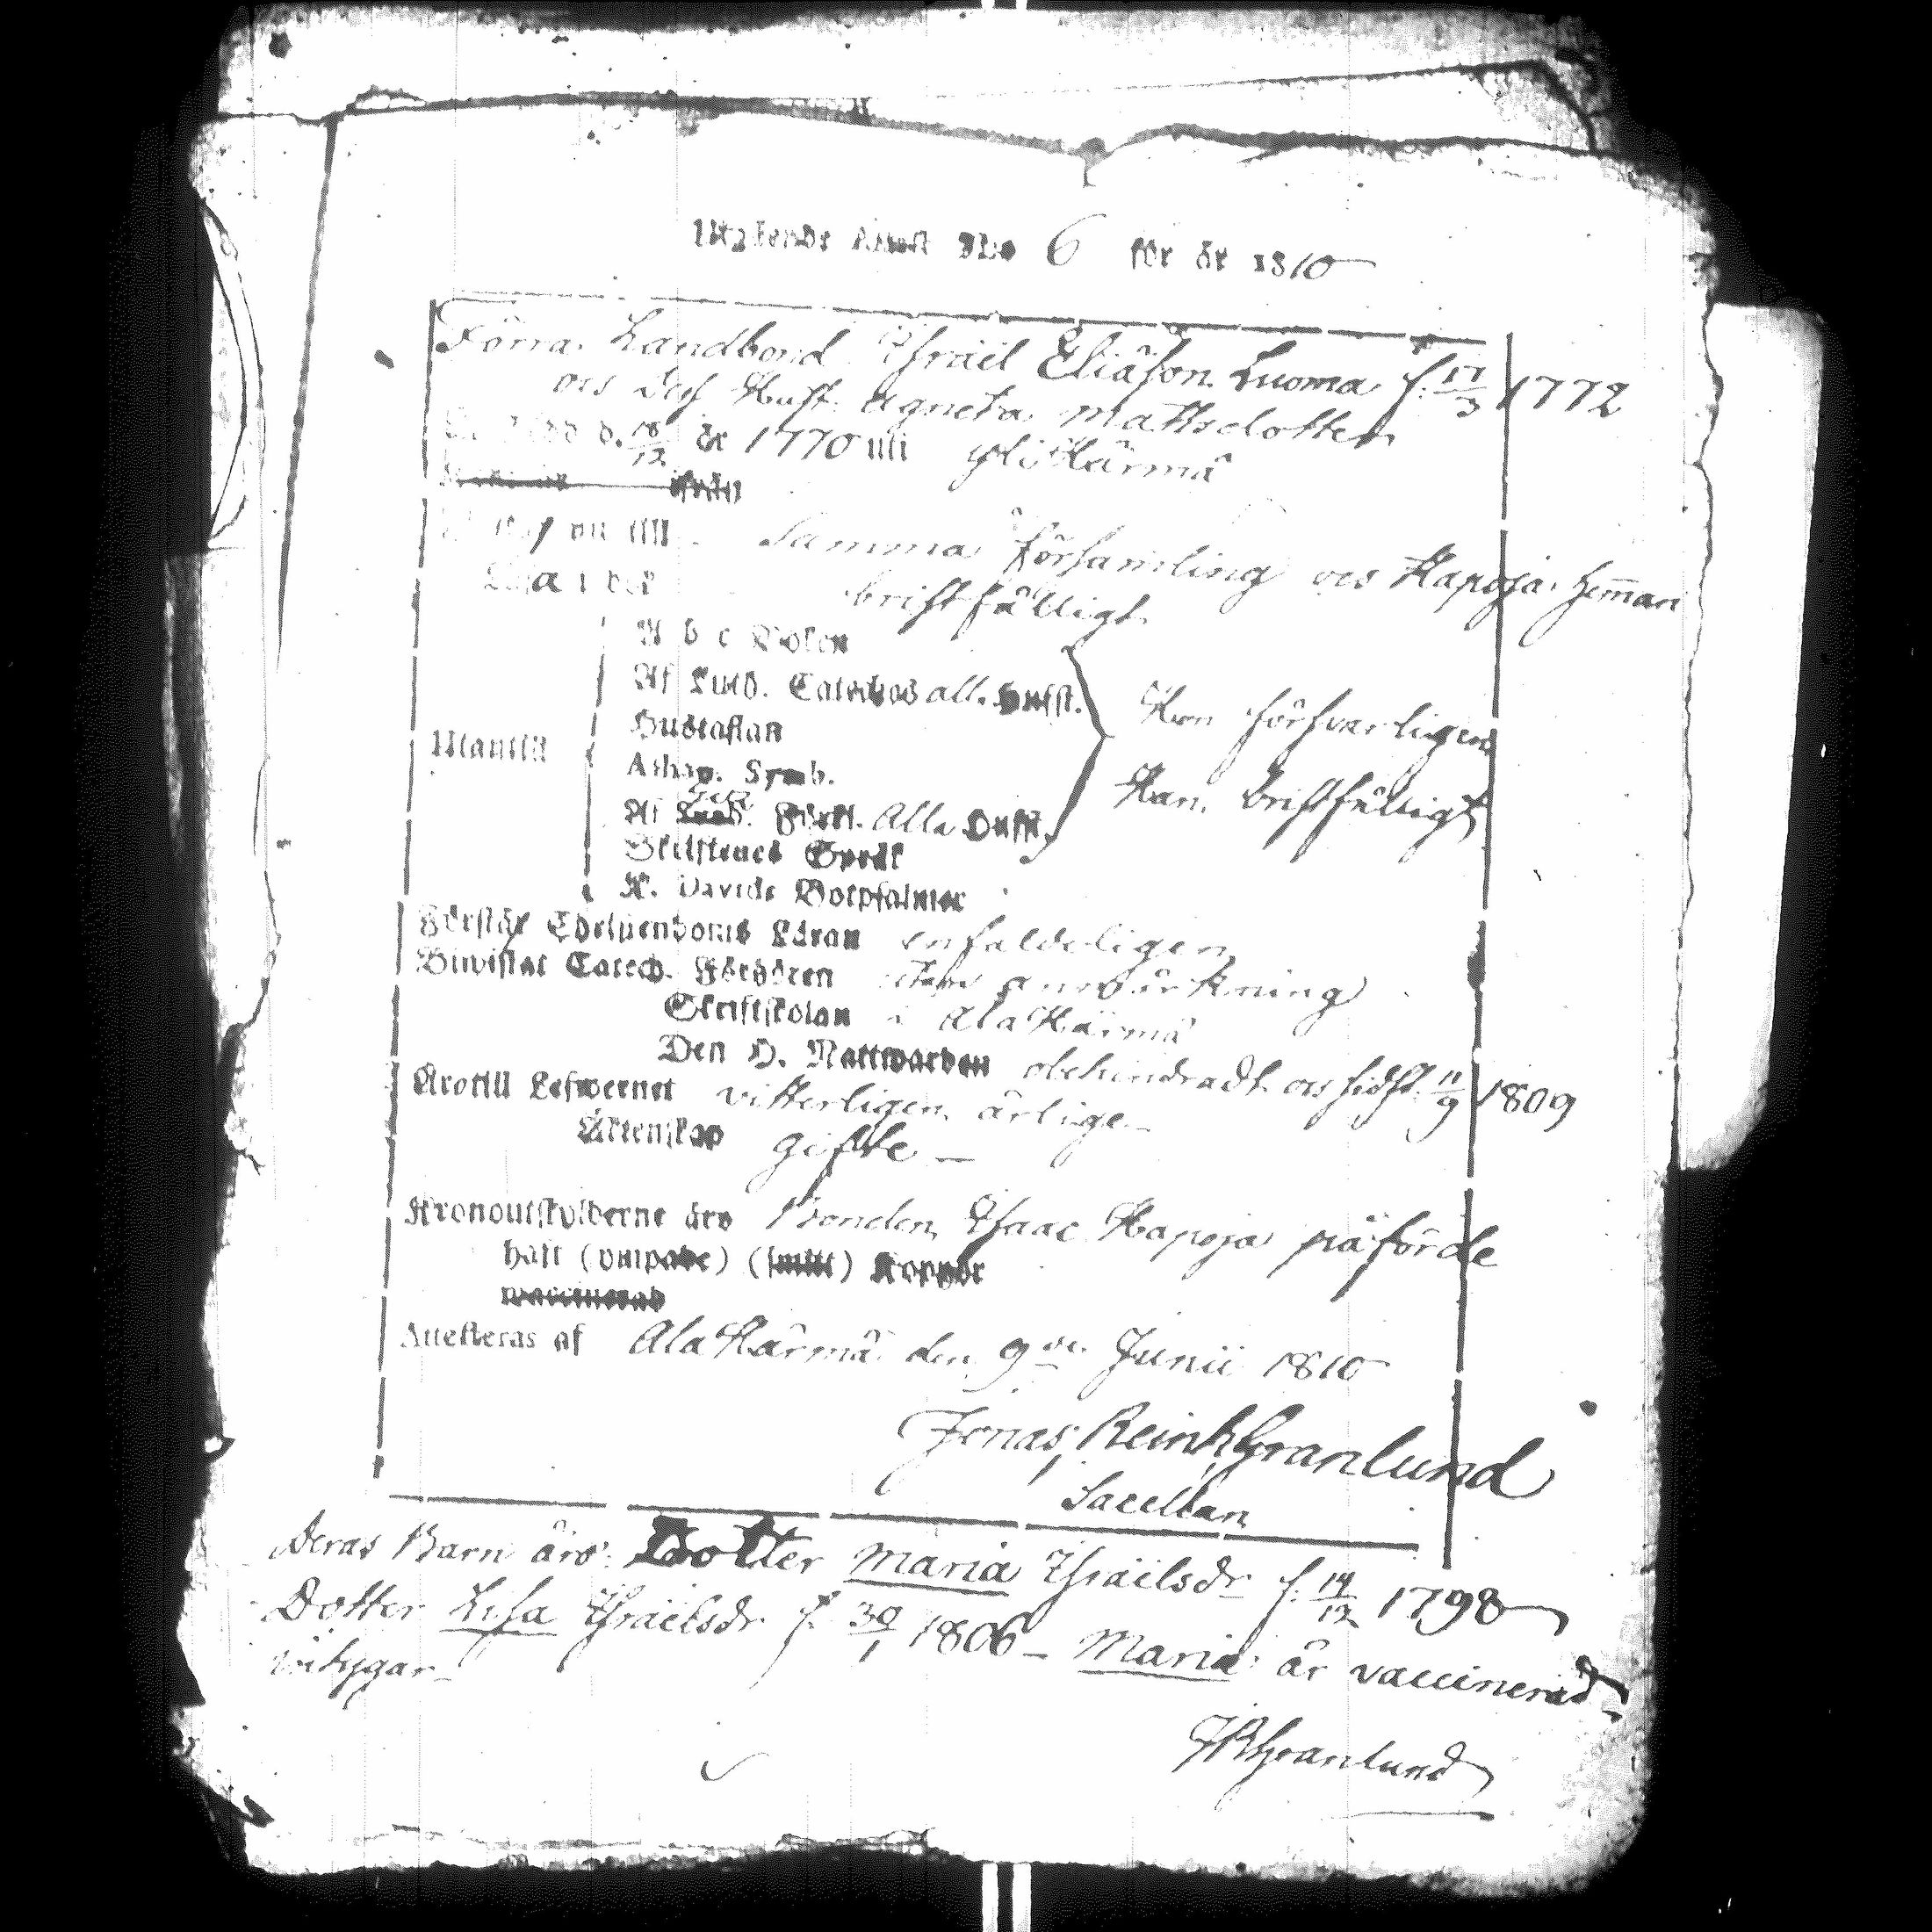 Utgående Attest No 6 för år 1810
Förra Landbond Israël Eliäson Luoma f. 17/3 1772
oc Dess Hust. Agneta Mattsdotter
född d. 18/12 år 1770 uti Yli Härmä
ifrån
till Samma Församling oc Kapoja Heman
bristfälligt
A b c Boken
Af Luth. Cateches all. Hufst.
Hustaflan
Athan. Symb.
Utantill
Af Förkl. Alla Hufst.
Skriftenes Språk
K. Davids Botpsalmer
Hon försvarligen
Han bristfälligt
Förstår Christendoms Läran enfaldeligen
Biwistat Catech. Förhören utan anmärkning
Skriftskolan i Ala Härmä
Den H. Nattwarden obehindradt oc sidst 11/9 1809
Fört till Lefwernet vitterligen ärliga
Äktenskap gifte –
Kronoutskylderne äro Bonden Isaac Kapoja påförde
haft (ympade) (smitt) Koppor
waccinerad
Attesteras af Ala Härmä den 9de Junii 1810
Jonas Reinh Granlund
Sacellan
Deras Barn äro: Dotter Maria Israëlsdr f. 14/12 1798
Dotter Lisa Israëlsdr f. 30/1 1806 – Maria är vaccinerad
JRGranlund